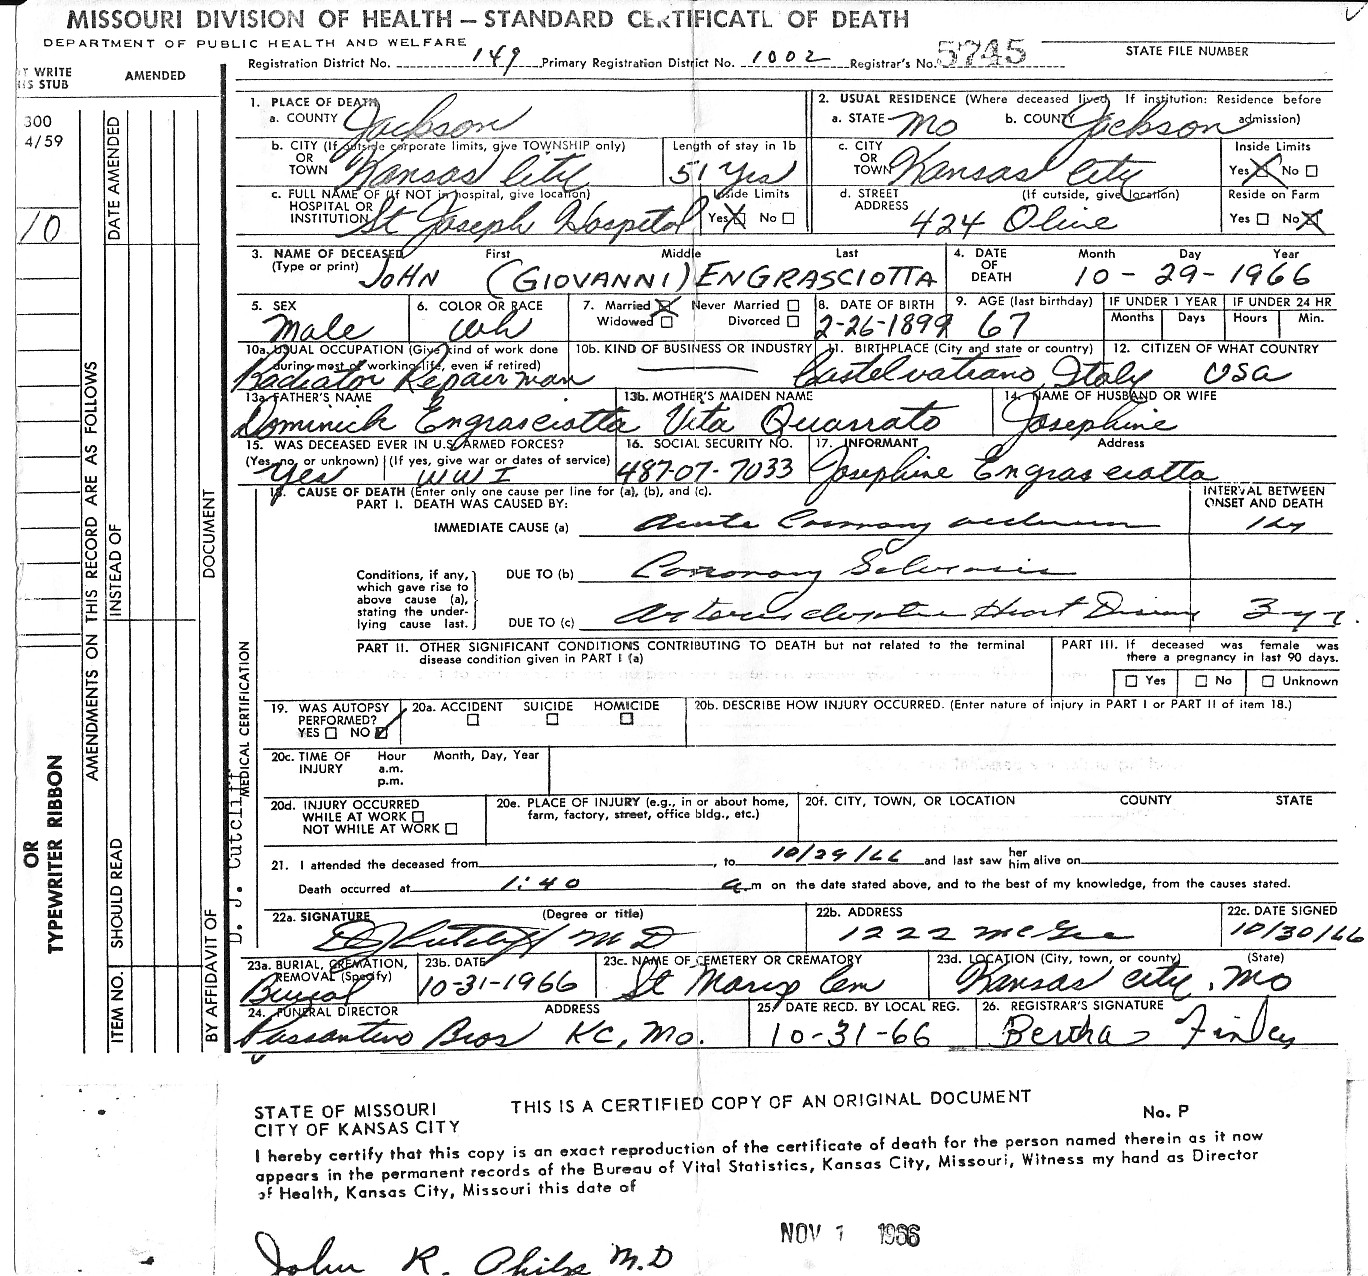 MISSOURI DIVISION OF HEALTH – STANDARD CERTIFICATE OF DEATH
DEPARTMENT OF PUBLIC HEALTH AND WELFARE
Registration District No. 149 Primary Registration District No. 1002 Registrar's No. 5745 STATE FILE NUMBER
WRITE
STUB
AMENDED
300
4/59
10
DATE AMENDED
AMENDMENTS ON THIS RECORD ARE AS FOLLOWS
INSTEAD OF
DOCUMENT
SHOULD READ
ITEM NO.
BY AFFIDAVIT OF
OR
TYPEWRITER RIBBON
MEDICAL CERTIFICATION
D. J. Cutcliff
1. PLACE OF DEATH
a. COUNTY Jackson
2. USUAL RESIDENCE (Where deceased lived. If institution: Residence before admission)
a. STATE Mo b. COUNTY Jackson
b. CITY (If outside corporate limits, give TOWNSHIP only) OR TOWN Kansas City
Length of stay in 1b 51 Yrs
c. CITY OR TOWN Kansas City
Inside Limits
Yes X No ☐
c. FULL NAME OF (If NOT in hospital, give location) HOSPITAL OR INSTITUTION St Joseph Hospital
Inside Limits
Yes X No ☐
d. STREET ADDRESS (If outside, give location) 424 Olive
Reside on Farm
Yes ☐ No X
3. NAME OF DECEASED (Type or print) First Middle Last
JOHN (GIOVANNI) ENGRASCIOTTA
4. DATE OF DEATH Month Day Year
10 - 29 - 1966
5. SEX Male
6. COLOR OR RACE Wh
7. Married X Never Married ☐
Widowed ☐ Divorced ☐
8. DATE OF BIRTH 2-26-1899
9. AGE (last birthday) 67
IF UNDER 1 YEAR Months Days
IF UNDER 24 HR Hours Min.
10a. USUAL OCCUPATION (Give kind of work done during most of working life, even if retired) Radiator Repairman
10b. KIND OF BUSINESS OR INDUSTRY
11. BIRTHPLACE (City and state or country) Castelvatrano, Italy
12. CITIZEN OF WHAT COUNTRY USA
13a. FATHER'S NAME Dominick Engrasciotta
13b. MOTHER'S MAIDEN NAME Vita Quarrato
14. NAME OF HUSBAND OR WIFE Josephine
15. WAS DECEASED EVER IN U.S. ARMED FORCES?
(Yes, no, or unknown) (If yes, give war or dates of service)
Yes WW I
16. SOCIAL SECURITY NO. 487-07-7033
17. INFORMANT Address
Josephine Engrasciotta
18. CAUSE OF DEATH (Enter only one cause per line for (a), (b), and (c).
PART I. DEATH WAS CAUSED BY:
INTERVAL BETWEEN ONSET AND DEATH
IMMEDIATE CAUSE (a) Acute Coronary occlusion
Conditions, if any, which gave rise to above cause (a), stating the underlying cause last.
DUE TO (b) Coronary Sclerosis
DUE TO (c) Arteriosclerotic Heart Disease 3 yr.
PART II. OTHER SIGNIFICANT CONDITIONS CONTRIBUTING TO DEATH but not related to the terminal disease condition given in PART I (a)
PART III. If deceased was female was there a pregnancy in last 90 days.
☐ Yes ☐ No ☐ Unknown
19. WAS AUTOPSY PERFORMED?
YES ☐ NO ☑
20a. ACCIDENT SUICIDE HOMICIDE
☐ ☐ ☐
20b. DESCRIBE HOW INJURY OCCURRED. (Enter nature of injury in PART I or PART II of item 18.)
20c. TIME OF INJURY Hour a.m. p.m. Month, Day, Year
20d. INJURY OCCURRED
WHILE AT WORK ☐
NOT WHILE AT WORK ☐
20e. PLACE OF INJURY (e.g., in or about home, farm, factory, street, office bldg., etc.)
20f. CITY, TOWN, OR LOCATION COUNTY STATE
21. I attended the deceased from , to 10/29/66 and last saw her him alive on
Death occurred at 1:40 a.m on the date stated above, and to the best of my knowledge, from the causes stated.
22a. SIGNATURE (Degree or title)
DJ Cutcliff MD
22b. ADDRESS
1222 McGee
22c. DATE SIGNED
10/30/66
23a. BURIAL, CREMATION, REMOVAL (Specify) Burial
23b. DATE 10-31-1966
23c. NAME OF CEMETERY OR CREMATORY St Marys Cem
23d. LOCATION (City, town, or county) (State)
Kansas City, Mo
24. FUNERAL DIRECTOR ADDRESS
Passantino Bros KC, Mo.
25. DATE RECD. BY LOCAL REG. 10-31-66
26. REGISTRAR'S SIGNATURE Bertha Finley
STATE OF MISSOURI
CITY OF KANSAS CITY
THIS IS A CERTIFIED COPY OF AN ORIGINAL DOCUMENT
No. P
I hereby certify that this copy is an exact reproduction of the certificate of death for the person named therein as it now
appears in the permanent records of the Bureau of Vital Statistics, Kansas City, Missouri, Witness my hand as Director
of Health, Kansas City, Missouri this date of
NOV 1 1966
John R. M.D